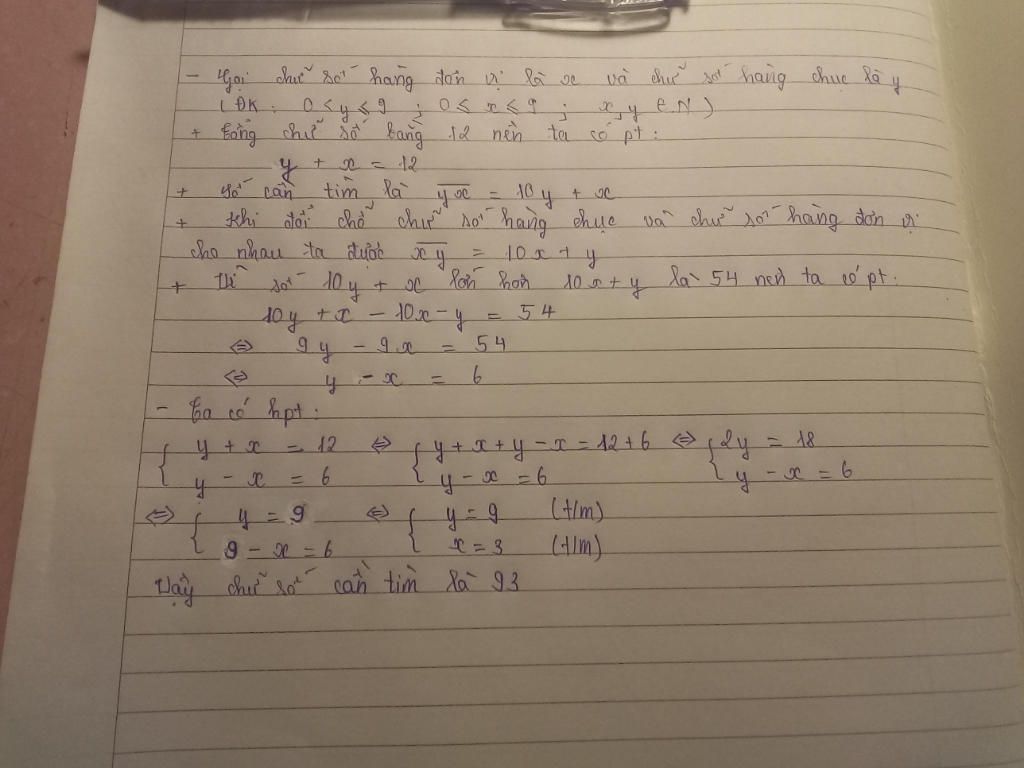 - Gọi chữ số hàng đơn vị là x và chữ số hàng chục là y
(ĐK: 0 < y ≤ 9 ; 0 ≤ x ≤ 9 ; x, y ∈ N)
+ Tổng chữ số bằng 12 nên ta có pt:
y + x = 12
+ Số cần tìm là \overline{yx} = 10y + x
+ Khi đổi chỗ chữ số hàng chục và chữ số hàng đơn vị
cho nhau ta được \overline{xy} = 10x + y
+ Vì số 10y + x lớn hơn 10x + y là 54 nên ta có pt:
10y + x - 10x - y = 54
⇔ 9y - 9x = 54
⇔ y - x = 6
- Ta có hpt:
{ y + x = 12 ⇔ { y + x + y - x = 12 + 6 ⇔ { 2y = 18
y - x = 6 y - x = 6 y - x = 6
⇔ { y = 9 ⇔ { y = 9 (t/m)
9 - x = 6 x = 3 (t/m)
Vậy chữ số cần tìm là 93